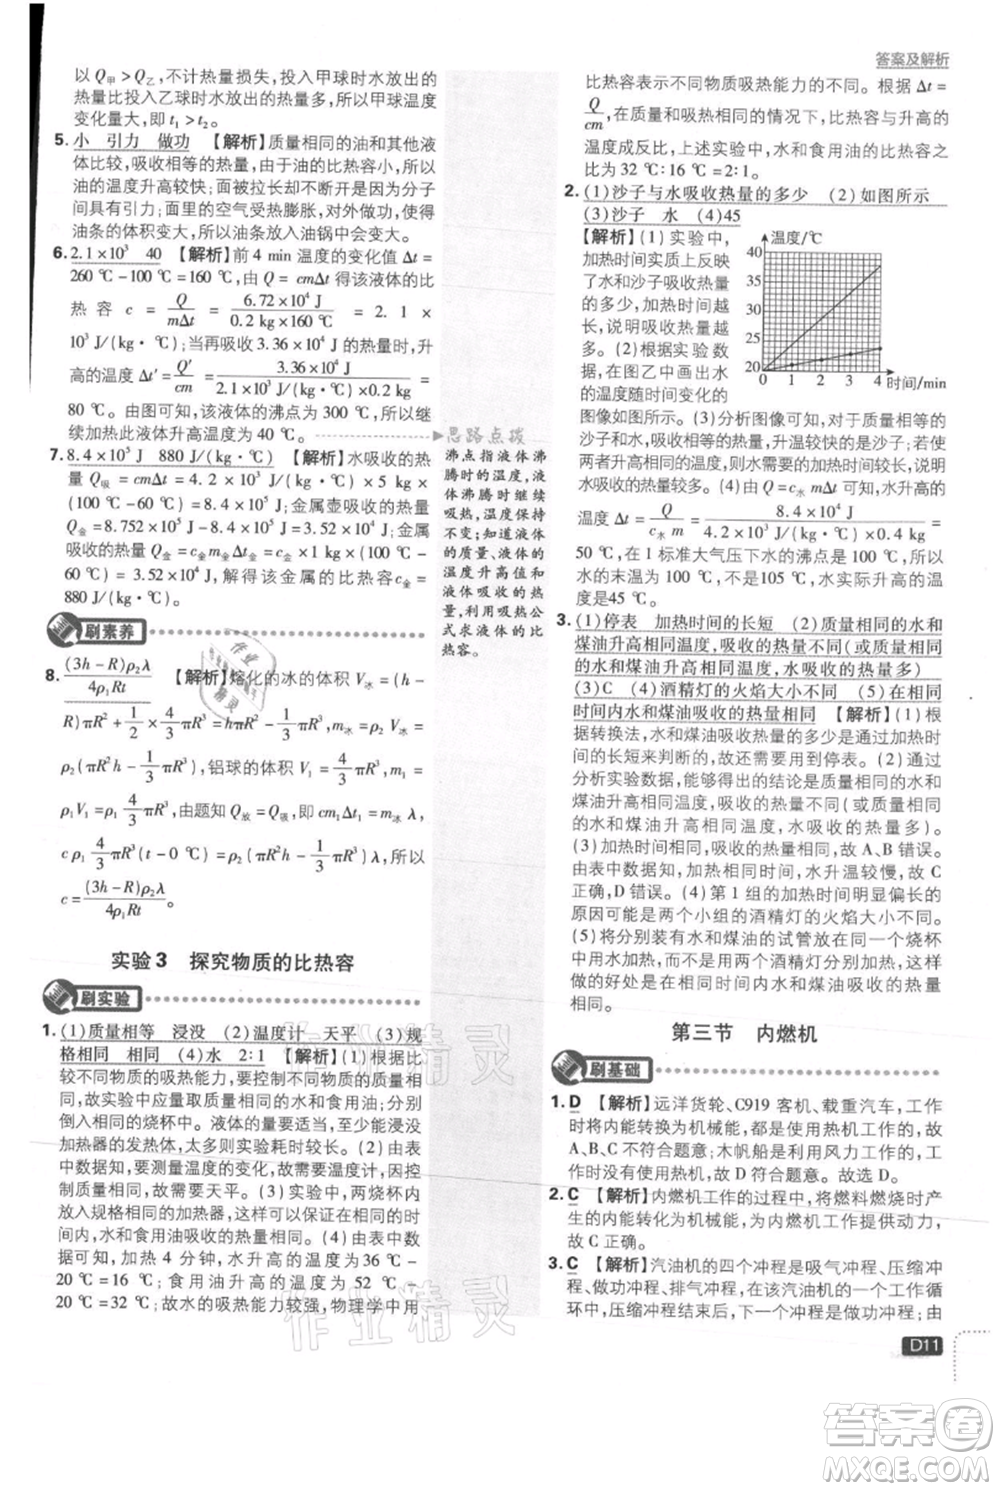 答案及解析
以 Q甲 > Q乙，不计热量损失，投入甲球时水放出的
热量比投入乙球时水放出的热量多，所以甲球温度
变化量大，即 t₁ > t₂。
5. 小 引力 做功 【解析】质量相同的油和其他液
体比较，吸收相等的热量，由于油的比热容小，所以
油的温度升高较快；面被拉长却不断，是因为分子
间具有引力；面里的空气受热膨胀，对外做功，使得
油条的体积变大，所以油条放入油锅中会变大。
6. 2.1×10³ 40 【解析】前 4 min 温度的变化值 Δt =
260 ℃ - 100 ℃ = 160 ℃，由 Q = cmΔt 得该液体的比
热容 c = Q/(mΔt) = (6.72×10⁴ J)/(0.2 kg×160 ℃) = 2.1×
10³ J/(kg·℃)；当再吸收 3.36×10⁴ J 的热量时，升
高的温度 Δt′ = Q′/(cm) = (3.36×10⁴ J)/(2.1×10³ J/(kg·℃)×0.2 kg) =
80 ℃。由图可知，该液体的沸点为 300 ℃，所以继
续加热此液体升高温度为 40 ℃。
7. 8.4×10⁵ J 880 J/(kg·℃) 【解析】水吸收的热
量 Q吸 = cmΔt = 4.2×10³ J/(kg·℃)×5 kg×
(100 ℃-60 ℃) = 8.4×10⁵ J；金属壶吸收的热量
Q金 = 8.752×10⁵ J - 8.4×10⁵ J = 3.52×10⁴ J；金属
吸收的热量 Q金 = c金m金Δt金 = c金×1 kg×(100 ℃-
60 ℃) = 3.52×10⁴ J，解得该金属的比热容 c金 =
880 J/(kg·℃)。
刷素养
8. (3h-R)ρ₂λ/(4ρ₁Rt) 【解析】熔化的冰的体积 V冰 = (h-
R)πR² + 1/2 × 4/3 πR³ = hπR² - 1/3 πR³，m冰 =
ρ₂(πR²h - 1/3 πR³)，铝球的体积 V₁ = 4/3 πR³，m₁ =
ρ₁V₁ = ρ₁ 4/3 πR³，由题知 Q放 = Q吸，即 cm₁Δt₁ = m冰λ，
cρ₁ 4/3 πR³(t-0 ℃) = ρ₂(πR²h - 1/3 πR³)λ，所以
c = (3h-R)ρ₂λ/(4ρ₁Rt)。
实验 3 探究物质的比热容
刷实验
1. (1)质量相等 浸没 (2)温度计 天平 (3)规
格相同 相同 (4)水 2:1 【解析】(1)根据比
较不同物质的吸热能力，要控制不同物质的质量相
同，故实验中应量取质量相等的水和食用油，分别倒
入相同的烧杯中。液体的量要适当，太少不能浸没
加热器的发热体，太多则实验耗时较长。(2)由表
中数据知，要测量温度的变化，故需要温度计，因需
要测质量，故需要天平。(3)实验中，两烧杯内
放入规格相同的加热器，可以保证在相同的时
间内，水和食用油吸收的热量相同。(4)由表中
数据可知，加热 4 分钟，水升高的温度为36 ℃-
20 ℃=16 ℃；食用油升高的温度为 52 ℃-
20 ℃=32 ℃；故水的吸热能力较强，物理学中用
思路点拨
沸点指液体沸
腾时的温度，液
体沸腾时继续
吸热，温度保持
不变；与该液体
的质量、液体的
温度升高值和
液体吸收的热
量，利用吸热公
式求液体的比
热容。
比热容表示不同物质吸热能力的不同。根据 Δt =
Q/(cm)，在质量和吸热相同的情况下，比热容与升高的
温度成反比，上述实验中，水和食用油的比热容
之比为 32 ℃:16 ℃=2:1。
2. (1)沙子与水吸收热量的多少 (2)如图所示
(3)沙子 水 (4)45
【解析】(1)实验中，
加热时间的长短反映
了水和沙子吸收热量
的多少，加热时间越
长，说明吸收热量越
多。(2)根据实验数
据，在图乙中画出水
的温度随时间变化的
温度/℃
40
35
30
25
20
0 1 2 3 4 时间/min
图像如图所示。(3)分析图像可知，对于质量相等的
沙子和水，加热相同时间，温度升高较快的是沙子；若使
两者升高相同的温度，则水需要加热更长的时间，即
水吸收的热量较多。(4)由 Q = c水mΔt 可得，水升高的
温度 Δt = Q/(c水m) = (8.4×10⁴ J)/(4.2×10³ J/(kg·℃)×0.4 kg) =
50 ℃，在 1 标准大气压下水的沸点是 100 ℃，所以
水的末温为 100 ℃，不是105 ℃，水实际升高的温
度是 45 ℃。
3. (1)停表 加热时间的长短 (2)质量相同的水和
煤油升高相同温度，吸收的热量不同(或质量相同
的水和煤油升高相同温度，水吸收的热量多)
(3)C (4)酒精灯的火焰大小不同 (5)在相同
时间内水和煤油吸收的热量相同 【解析】(1)根
据转换法，水和煤油吸收热量的多少是通过加热时
间的长短来判断的，所以需要用到停表。(2)通过
分析实验数据，能够得出的结论是质量相同的水和
煤油升高相同温度，吸收的热量不同(或质量相同
的水和煤油升高相同温度，水吸收的热量多)。
(3)加热时间相同，则吸收热量相同，故 A、B 错误；
由表中数据知，加热相同时间，水升温慢，故 C
正确，D 错误。(4)第 1 组的加热时间明显偏长的
原因可能是两个小组的酒精灯的火焰大小不同。
(5)将分别装有水和煤油的试管放在同一个烧杯
中水浴加热，与用两个酒精灯分别加热相比，这样做
的好处是在相同时间内水和煤油吸收的热量
相同。
第三节 内燃机
刷基础
1. D 【解析】远洋货轮、C919 客机、载重汽车，工作
时将内能转化为机械能，都是使用热机工作的，故
A、B、C 不符合题意；木帆船是利用风力工作的，
没有使用热机，故 D 符合题意。故选 D。
2. C 【解析】内燃机工作的过程中，将燃料燃烧时产
生的内能转化为机械能，为内燃机工作提供动力，
故 C 正确。
3. C 【解析】汽油机的四个冲程是吸气冲程、压缩
冲程、做功冲程、排气冲程，在该汽油机的一个工作循
环中，压缩冲程结束后，下一个冲程是做功冲程；由
D11
作业精灵
作业精灵
作业精灵
答案卷
MXQE.COM